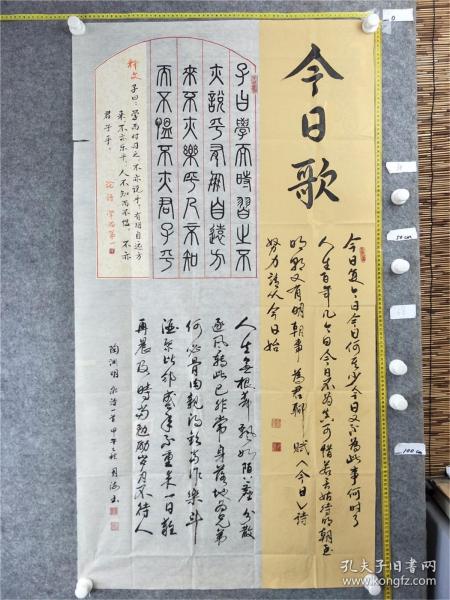 今日歌
今日复今日今日何其少今日又不为此事何时了
人生百年几今日今日不为真可惜若言姑待明朝至
明朝又有明朝事为君聊赋《今日》诗
努力请从今日始
子曰學而時習之不
亦說乎有朋自遠方
來不亦樂乎人不知
而不慍不亦君子乎
释文 子曰：学而时习之，不亦说乎，有朋自远方
来，不亦乐乎，人不知而不愠，不亦
君子乎。
论语 学而第一
人生无根蒂飘如陌上尘分散
逐风转此已非常身落地为兄弟
何必骨肉亲得欢当作乐斗
酒聚比邻盛年不重来一日难
再晨及时当勉励岁月不待人
陶渊明 杂诗一首 甲午之秋
0
50cm
100cm
孔夫子旧书网